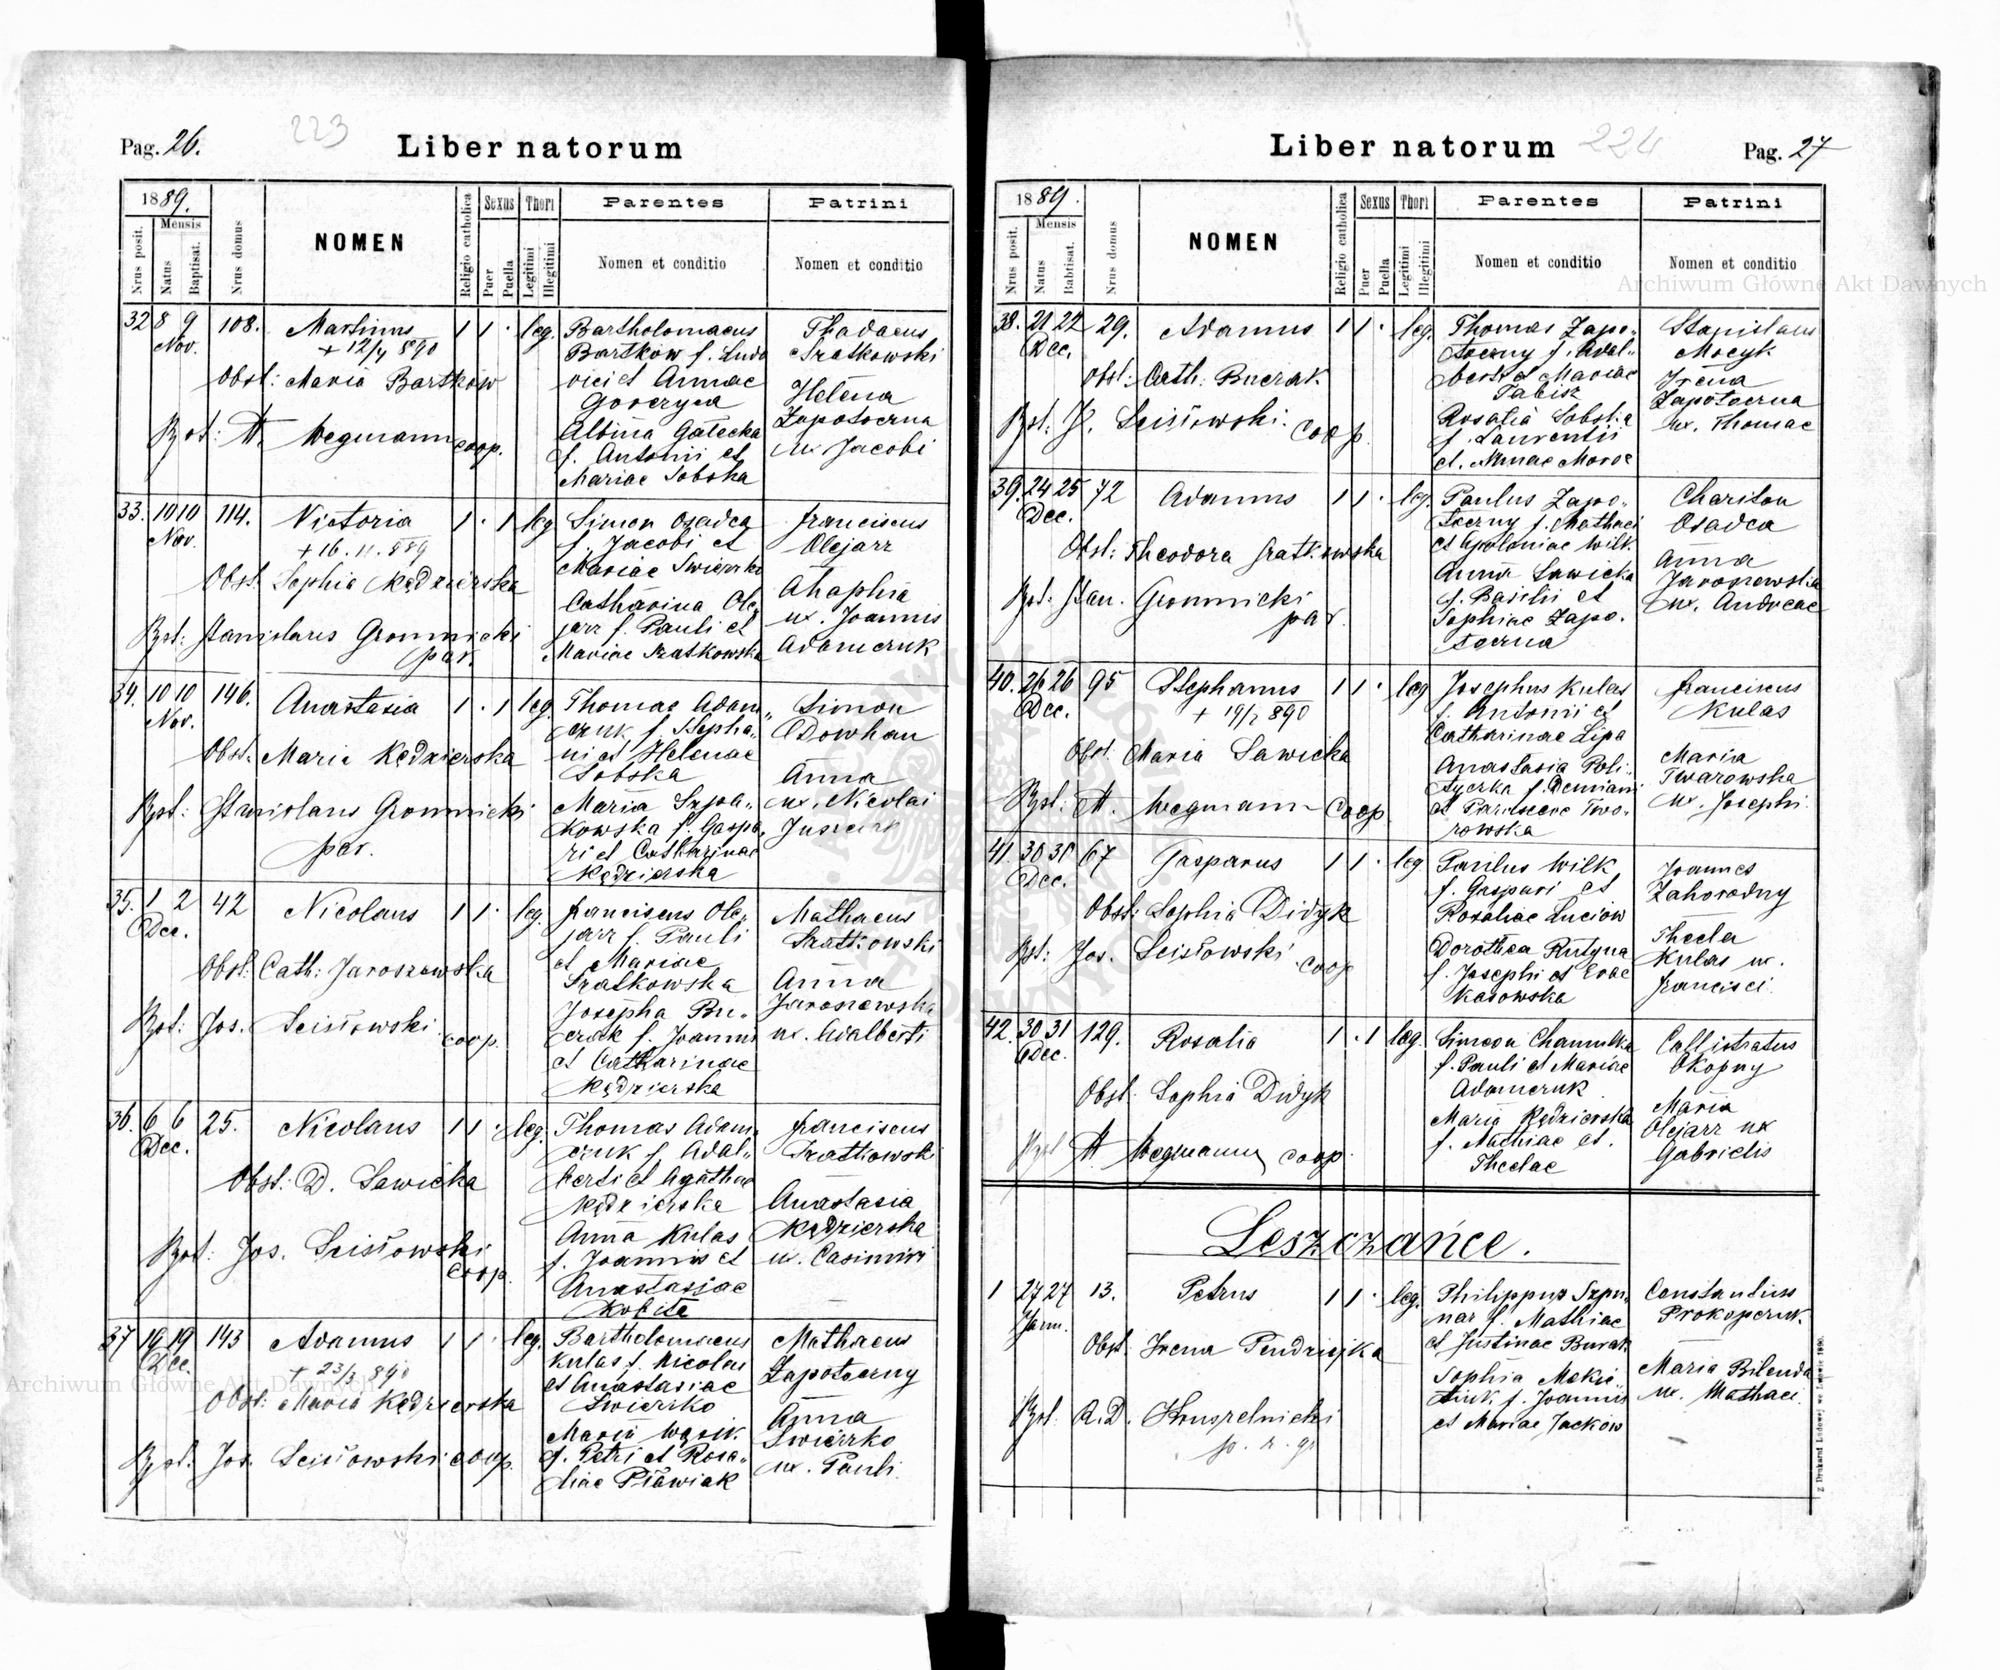 Pag. 26.
223
Liber natorum
1889.
Nrus posit.
Mensis
Natus
Baptisat.
Nrus domus
NOMEN
Religio catholica
Sexus
Puer
Puella
Thori
Legitimi
Illegitimi
Parentes
Nomen et conditio
Patrini
Nomen et conditio
32 8 9 108. Martinus 1 1 · leg. Bartholomaeus Thadaeus
Nov. + 12/4 890 Bartkow f. Ludo Sratkowski
Obst: Maria Bartkow vici et Annae Helena
Goveryca Zapotoczna
Bpt: A. Wegmann coop. Albina Gałecka ux Jacobi
f. Antonii et
Mariae Sobska
33. 10 10 114. Victoria 1 · 1 leg Simon Osadca Franciscus
Nov. + 16. 11. 889 f. Jacobi et Olejarz
Obst. Sophia Kędzierska Mariae Swierzko Ahaphia
Catharina Ole, ux. Joannis
Bpt: Stanislaus Gromnicki jarz f. Pauli et Adamczuk
par. Mariae Sratkowska
34. 10 10 146. Anastasia 1 · 1 leg. Thomas Adam„ Simon
Nov. czuk f. Stepha„ Dowhan
Obst. Maria Kędzierska ni et Helenae Anna
Sobska ux. Nicolai
Bpt: Stanislaus Gromnicki Maria Szpa„
par. kowska f. Gaspa,
ri et Catharinae
Kędzierska
35. 1 2 42 Nicolaus 1 1 · leg. Franciscus Ole, Mathaeus
Dec. jarz f. Pauli Sratkowski
Obst. Cath: Jaroszewska et Mariae Anna
Sratkowska Jaroszewska
Bpt: Jos. Scisłowski coop. Josepha Bu„ ux. Adalberti
czak f. Joannis
et Catharinae
Kędzierska
36. 6 6 25. Nicolaus 1 1 · leg. Thomas Adam, Franciscus
Dec. czuk f. Adal„ Sratkowski
Obst: D. Sawicka berti et Agathae Anastasia
Kędzierska Kędzierska
Bpt: Jos. Scisłowski coop. Anna Kulas ux. Casimiri
f. Joannis et
Anastasiae
37 19 19 143 Adamus 1 1 · leg. Bartholomaeus Mathaeus
Dec. + 23/3 890 Kulas f. Nicolai Zapotoczny
Obst: Maria Kędzierska et Anastasiae Anna
Swierzko Swierzko
Bpt: Jos. Scisłowski coop. Maria Wąsik ux. Pauli
f. Petri et Rosa„
liae Pławiak
Liber natorum
224
Pag. 27
1889.
Nrus posit.
Mensis
Natus
Babtisat.
Nrus domus
NOMEN
Religio catholica
Sexus
Puer
Puella
Thori
Legitimi
Illegitimi
Parentes
Nomen et conditio
Patrini
Nomen et conditio
38. 21 22 29. Adamus 1 1 · leg. Thomas Zapo„ Stanislaus
Dec. toczny f. Adal„ Mocyk
Obst: Cath: Buczak berti et Mariae Irena
Tabisz Zapotoczna
Bpt: J. Scisłowski coop. Rosalia Sobska ux. Thomae
f. Laurentii
et. Annae Moroz
39. 24 25 72 Adamus 1 1 · leg. Paulus Zapo„ Chariton
Dec. toczny f. Mathaei Osadca
Obst: Theodora Sratkowska et Apoloniae Wilk Anna
Anna Sawicka Jaroszewska
Bpt: Stan. Gromnicki f. Basilii et ux. Andreae
par. Sophiae Zapo.
toczna
40. 26 26 95 Stephanus 1 1 · leg Josephus Kulas Franciscus
Dec. + 19/2 890 f. Antonii et Kulas
Obst. Maria Sawicka Catharinae Lipa Maria
Anastasia Poli„ Twarowska
Bpt: A. Wegmann coop tycka f. Demiani ux. Josephi
rowska
41. 30 31 67 Gasparus 1 1 · leg Paulus Wilk Joannes
Dec. f. Gaspari et Zahorodny
Obst: Sophia Didyk Rosaliae Luciow Thecla
Dorothea Rutyna Kulas ux.
Bpt: Jos. Scisłowski coop f. Josephi et Evae Francisci
Kasowska
42. 30 31 129. Rosalia 1 · 1 leg. Simeon Chamulka Callistratus
Dec. f. Pauli et Mariae Okopny
Obst. Sophia Didyk Adamczuk Maria
Maria Kędzierska Olejarz ux
Bpt A. Wegmann coop f. Mathiae et. Gabrielis
Theclae
Leszczańce.
1 27 27 13. Petrus 1 1 · leg. Philippus Szpu„ Constantius
Jann. nar f. Mathiae Prokopczuk.
Obst. Irena Pendzijka et Justinae Burak
Sophia Maria Bilenda
f. Joannis ux. Mathaei
Bpt. A. D. Kruszelnicki et Mariae Jackow
p. r. gr
Z Drukarni Ludowej we Lwowie 1890.
Archiwum Główne Akt Dawnych
Archiwum Główne Akt Dawnych